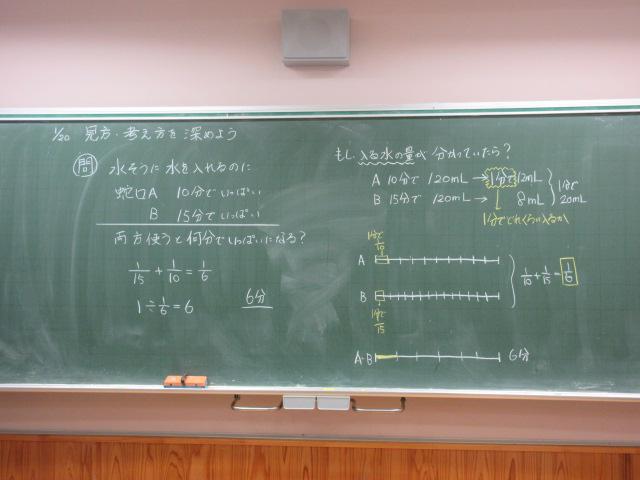 1/20 見方・考え方を深めよう
問 水そうに水を入れるのに
蛇口A 10分でいっぱい
B 15分でいっぱい
両方使うと何分でいっぱいになる?
1/15 + 1/10 = 1/6
1÷1/6=6 6分
もし入る水の量が分かっていたら?
A 10分で 120mL → 1分で 12mL
B 15分で 120mL → 8mL
1分で 20mL
1分でどれくらい入るか
1分で 1/10
A
B
1分で 1/15
1/10 + 1/15 = 1/6
A・B 6分